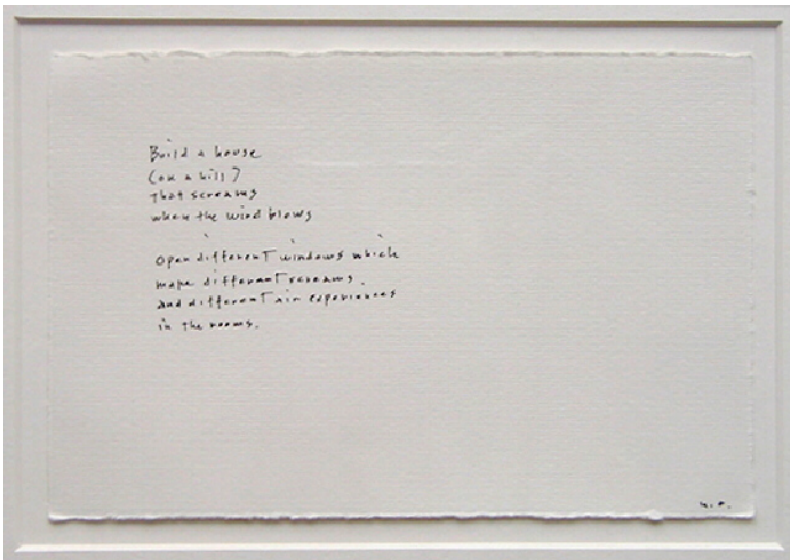 Build a house
(on a hill)
that screams
when the wind blows
open different windows which
make different screams.
and different air experiences
in the rooms.
y.o.